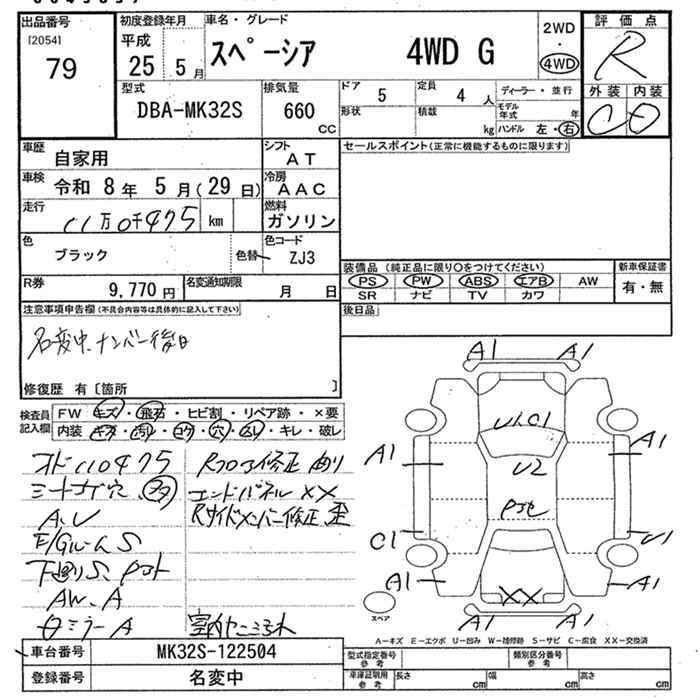 出品番号 初度登録年月 車名・グレード 2WD 評価点
[2054] 平成 スペーシア 4WD G 4WD R
79 25 5月
型式 排気量 ドア 5 定員 4人 ディーラー・並行 外装 内装
DBA-MK32S 660 CC 形状 積載 kg モデル年式 年 C D
ハンドル 左・右
車歴 自家用 シフト AT セールスポイント(正常に機能するものに限ります)
車検 令和 8年 5月(29日) 冷房 AAC
走行 11万0千475 km 燃料 ガソリン
色 ブラック 色替 色コード ZJ3
装備品(純正品に限り○をつけてください) 新車保証書
R券 9,770円 名変通知期限 月 日 PS PW ABS エアB AW 有・無
SR ナビ TV カワ
注意事項申告欄(不具合内容等は具体的に記入して下さい) 後日品
名変中、ナンバー後日
修復歴 有〔箇所 〕
検査員記入欄 FW キズ・飛石・ヒビ割・リペア跡・×要
内装 キズ・汚レ・コゲ・穴・スレ・キレ・破レ
オド110475 Rフロア修正 曲り
エンドパネル XX
A、U Rサイドメンバー修正 歪
F/Gルーム S
下廻りS、
AW、A
ミラーA
A1 A1
A1 U2 A1
C1 U1
A1 XX A1
A1 A1
スペア
A-キズ E-エクボ U-凹み W-補修跡 S-サビ C-腐食 XX-交換済
車台番号 MK32S-122504 型式指定番号 参考 類別区分番号 参考
登録番号 名変中 車庫証明用 参考 長さ cm 幅 cm 高さ cm